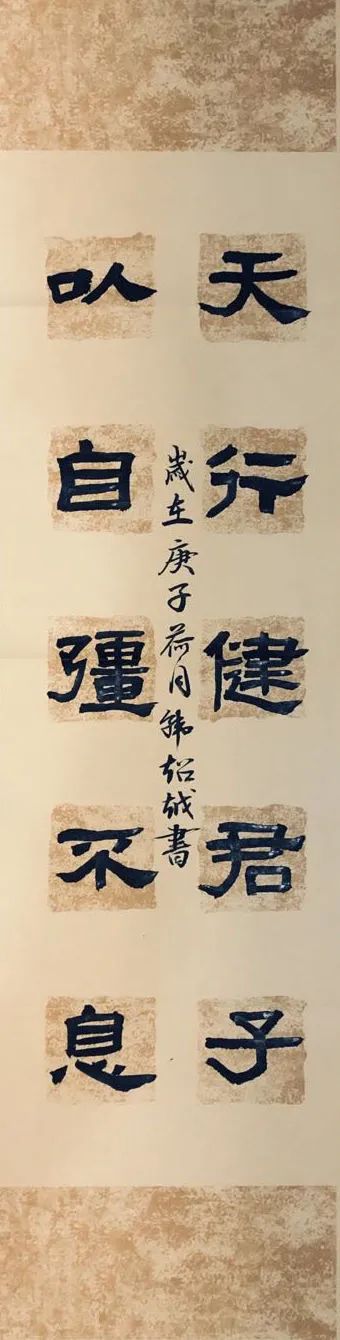 天行健君子
以自彊不息
歲在庚子荷月韩超越書